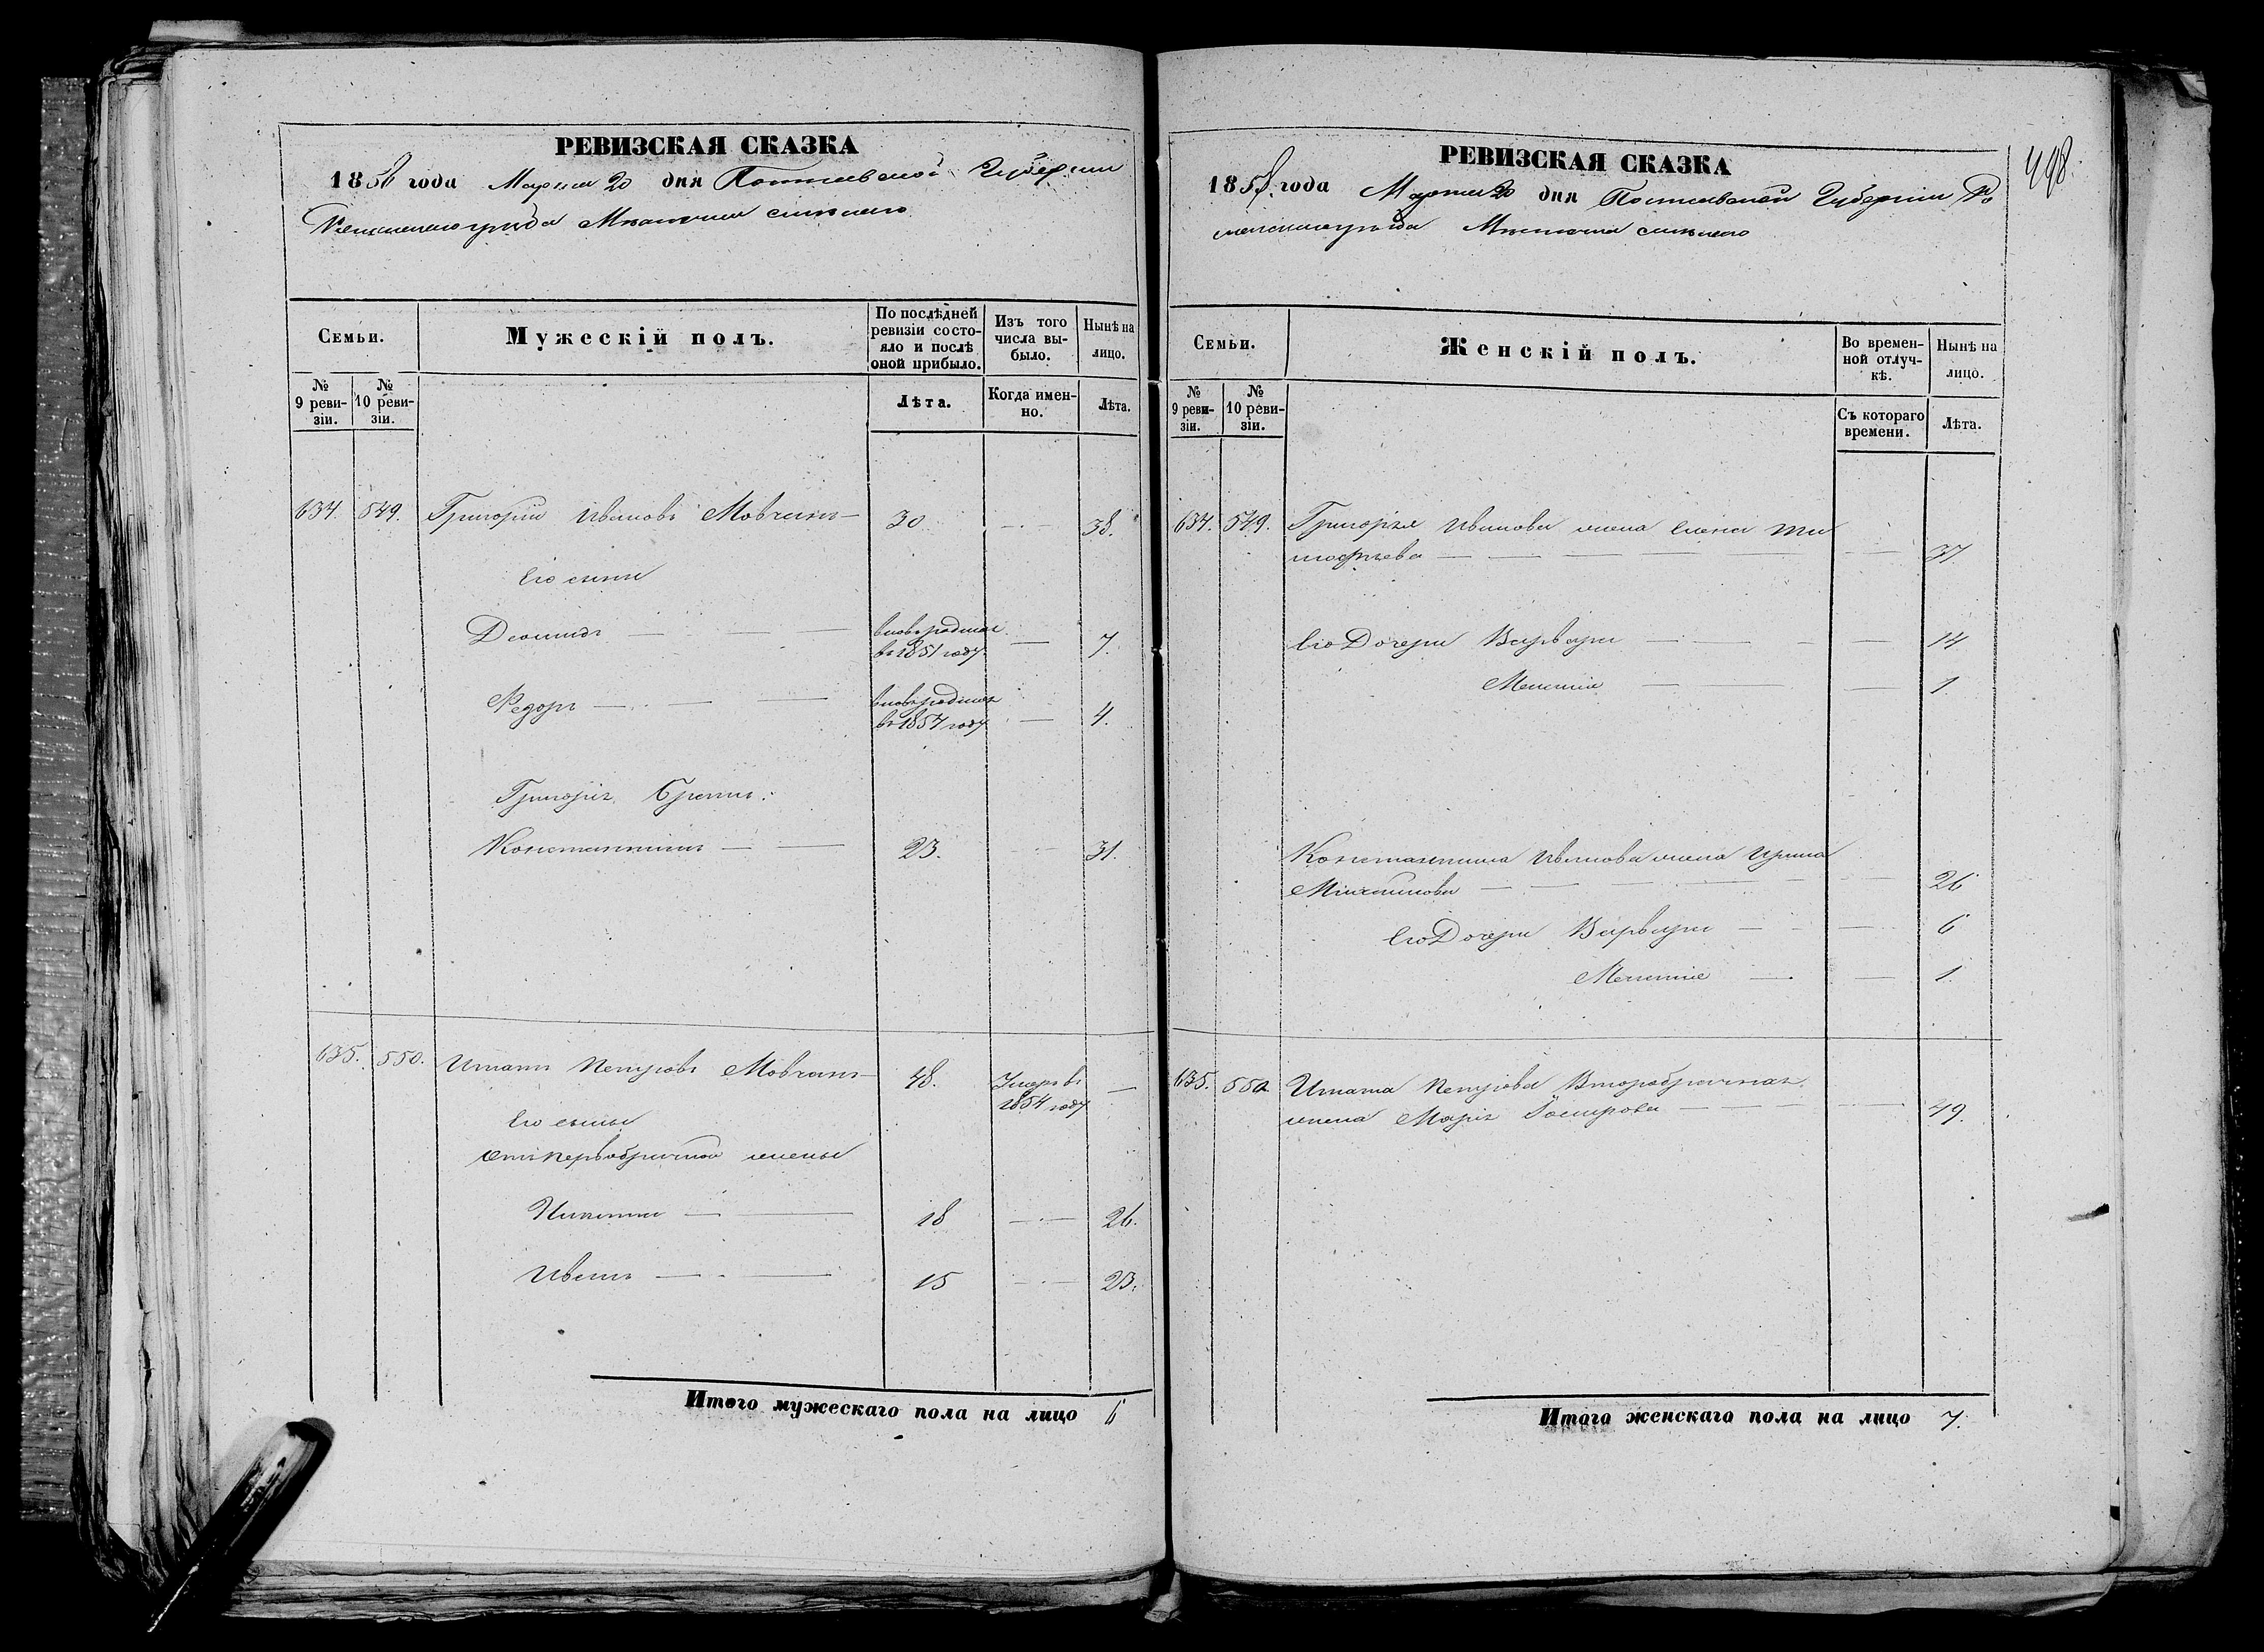 РЕВИЗСКАЯ СКАЗКА
1858 года Марта 20 дня Полтавской Губернии
Роменского уезда Местечка Смелого
Семьи.
Мужескій полъ.
По послѣдней ревизіи состояло и послѣ оной прибыло.
Изъ того числа выбыло.
Нынѣ на лицо.
№ 9 ревизіи.
№ 10 ревизіи.
Лѣта.
Когда именно.
Лѣта.
634. 549. Григорій Ивановъ Мовчанъ 30 38.
Его сыны
Леонидъ вновь родился въ 1851 году. 7.
Федоръ вновь родился въ 1854 году 4.
Григорія Братъ:
Константинъ 23. 31.
635. 550. Игнатъ Петровъ Мовчанъ 48. Умеръ въ 1854 году
Его сыны
отъ первобрачной жены
Никита 18 26.
Иванъ 15 23.
Итого мужескаго пола на лицо 6
РЕВИЗСКАЯ СКАЗКА
498.
1858 года Марта 20 дня Полтавской Губерніи Ро
менского уезда Местечка Смелого
Семьи.
Женскій полъ.
Во временной отлучкѣ.
Нынѣ на лицо.
№ 9 ревизіи.
№ 10 ревизіи.
Съ котораго времени.
Лѣта.
634. 549. Григорія Иванова жена Елена Ти
мофѣева 37.
Его Дочери Варвара 14
1
Константина Иванова жена Ирина
26
Его Дочери Варвара 6
1.
635. 550 Игната Петрова Второбрачная
жена Марія 49.
Итого женскаго пола на лицо 7.